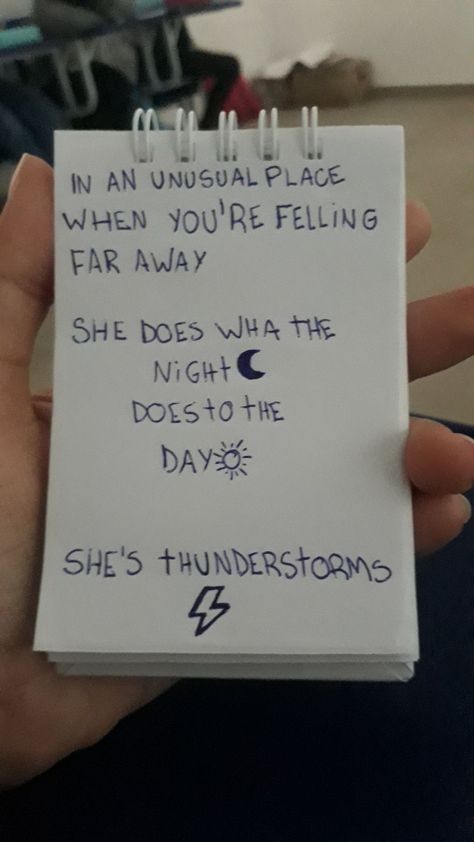 IN AN UNUSUAL PLACE
WHEN YOU'RE FELLING
FAR AWAY
SHE DOES WHA THE
NIGHT
DOES TO THE
DAY
SHE'S THUNDERSTORMS